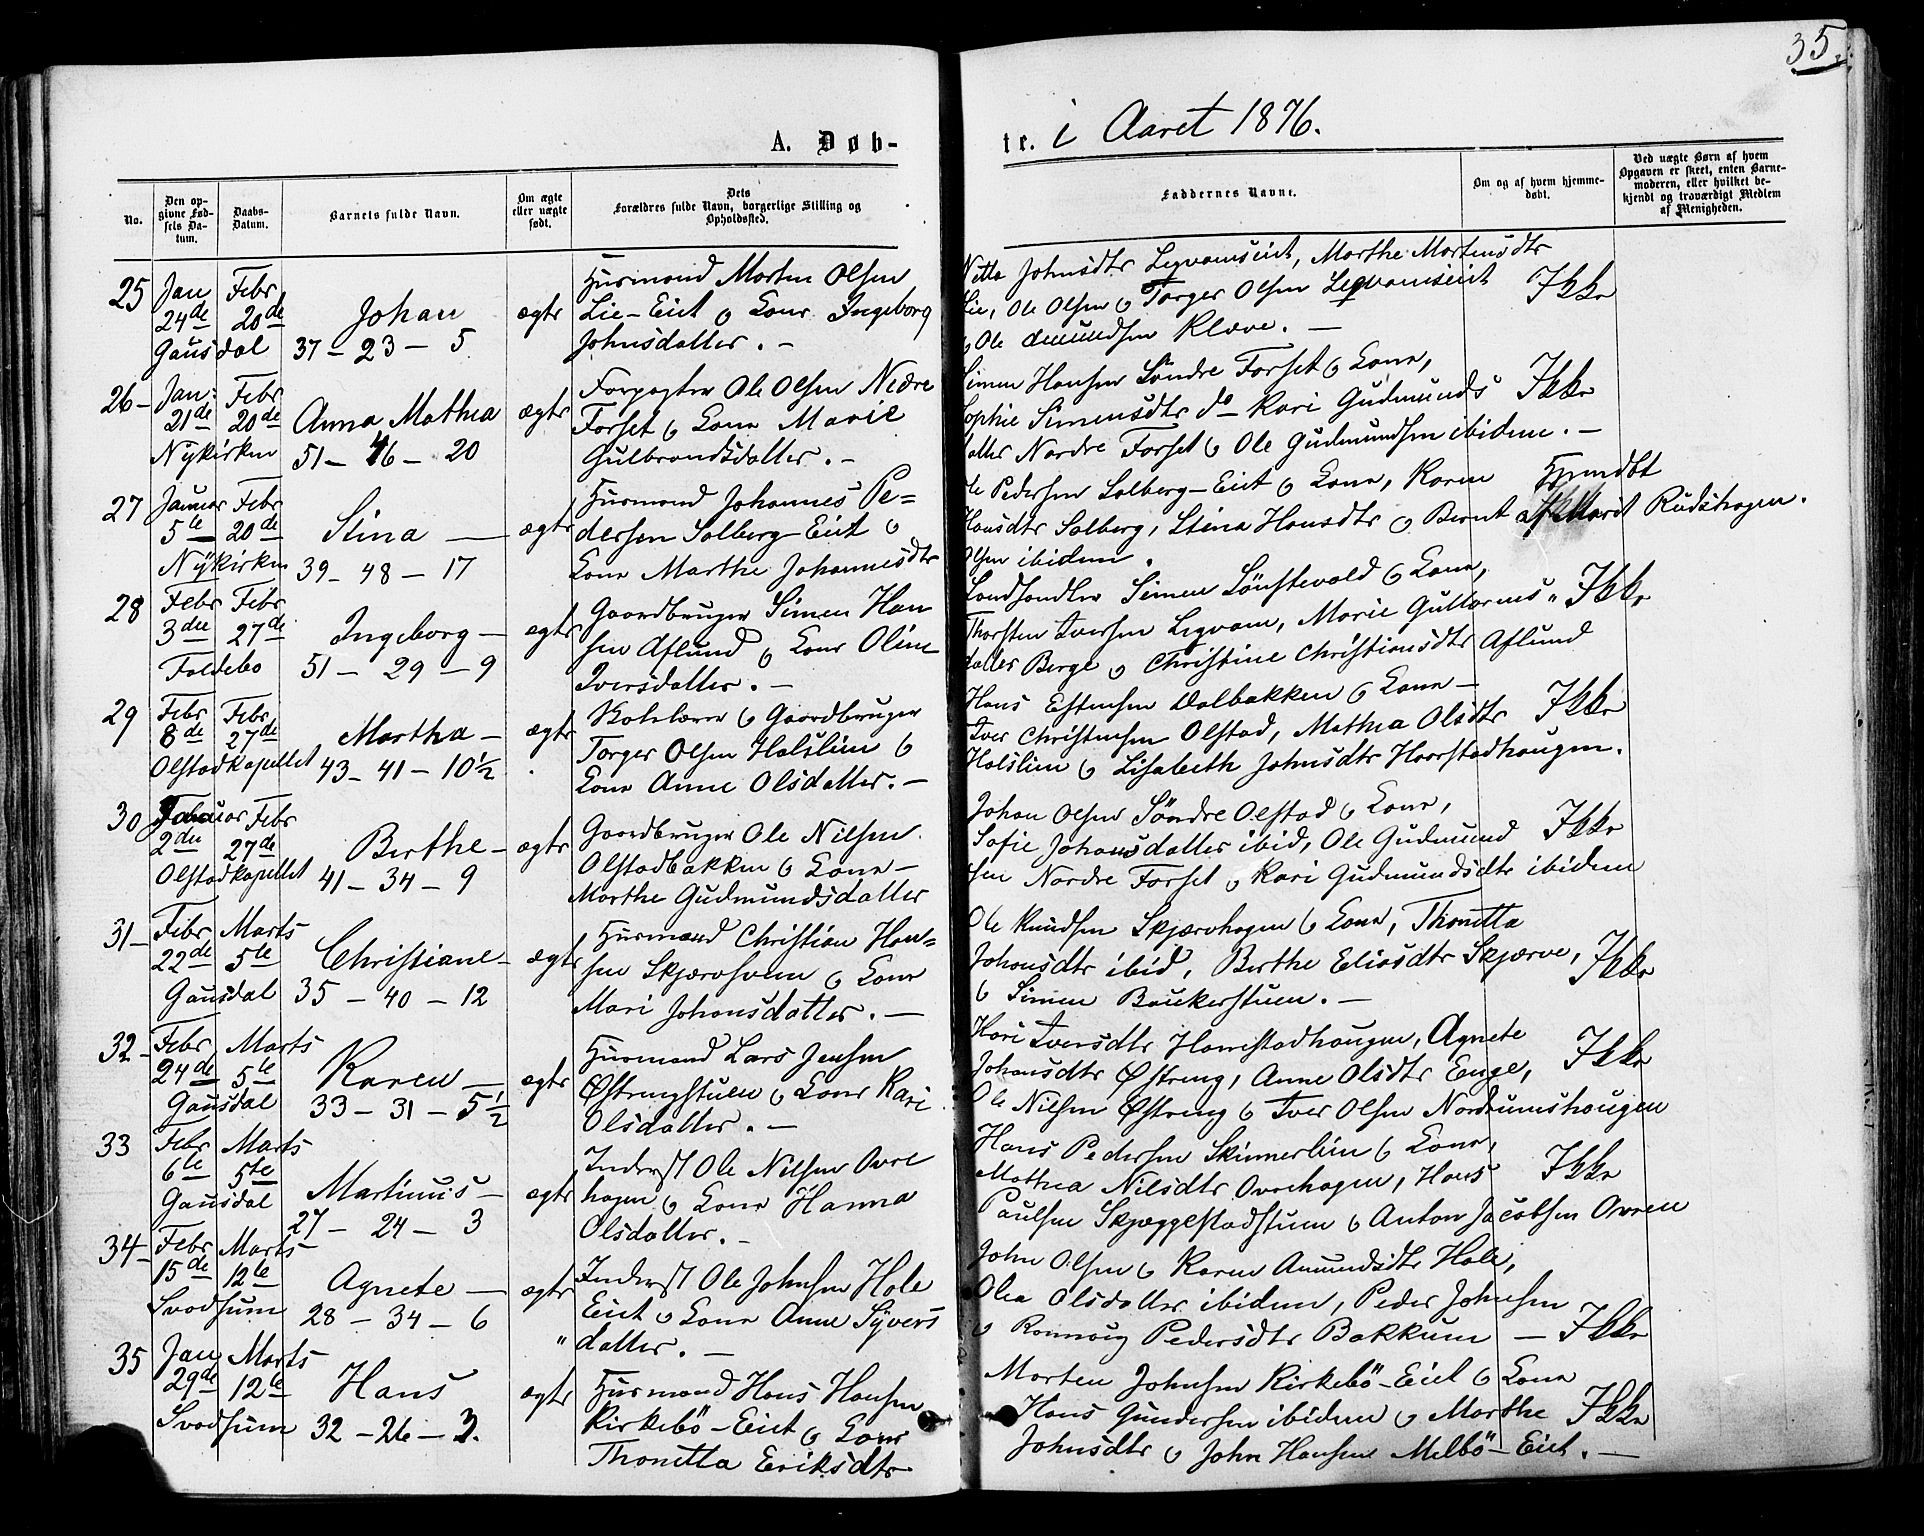 35.
A. Døb-
te. i Aaret 1876.
No.
Den op-
givne Fød-
sels Da-
tum.
Daabs-
Datum.
Barnets fulde Navn.
Om ægte
eller uægte
født.
Dets
Forældres fulde Navn, borgerlige Stilling og
Opholdssted.
Faddernes Navne.
Om og af hvem hjemme-
døbt.
Ved uægte Børn af hvem
Opgaven er skeet, enten Barne-
moderen, eller hvilket be-
kjendt og troværdigt Medlem
af Menigheden.
25 Jan Febr
24de 20de Johan ægte
Gausdal 37 – 23 – 5
Husmand Morten Olsen
Lie-Eiet & Kone Ingeborg
Johnsdatter. –
Johnsdtr Legvamseiet, Marthe Mortensdtr
Lie, Ole Olsen & Torger Olsen Legvamseiet Ikke
& Ole Amundsen Kløve. –
26 – Jan: Febr
21de 20de Anna Mathea ægte
Nykirken 51 – 46 – 20
Forpagter Ole Olsen Nedre
Forset & Kone Marie
Gulbrandsdatter. –
Simen Hansen Søndre Forset & Kone, Ikke
Sophie Simensdtr do Kari Gudmunds
datter Nordre Forset & Ole Gudmundsen ibidem. –
27 Januar Febr
5te 20de Stina – ægte
Nykirken 39 – 48 – 17
Husmand Johannes Pe=
dersen Solberg-Eiet &
Kone Marthe Johannesdtr
Ole Pedersen Solberg-Eiet & Kone, Karen Hjemdbt
Hansdtr Solberg, Stina Hansdtr & Bernt af Marit Rudshagen.
Olsen ibidem.
28 Febr Febr
3die 27de Ingeborg – ægte
Follebo 51 – 29 – 9
Gaardbruger Simen Han
sen Aflund & Kone Oline
Iversdatter. –
Landhandler Simen Lønstevold & Kone,
Thorsten Iversen Legvam, Marie Guttorms" Ikke
datter Berge & Christine Christiansdtr Aflund
29 Febr Febr
8de 27de Martha – ægte
Olstadkapellet 43 – 41 – 10½
Skolelærer & Gaardbruger
Torger Olsen Holslien &
Kone Anne Olsdatter. –
Hans Estensen Dalbakken & Kone –
Iver Christensen Olstad, Mathea Olsdtr Ikke
Holslien & Lisabeth Johnsdtr Haarstadhaugen.
30 Febr
2den 27de Berthe – ægte
Olstadkapellet 41 – 34 – 9
Gaardbruger Ole Nilsen
Olstadbakken & Kone –
Marthe Gudmundsdatter
Johan Olsen Søndre Olstad & Kone,
Sofie Johansdatter ibid, Ole Gudmund Ikke
sen Nordre Forset & Kari Gudmundsdtr ibidem
31 – Febr Marts
22de 5te Christiane – ægte
Gausdal 35 – 40 – 12
Husmand Christian Han=
sen Skjærvsveen & Kone
Mari Johansdatter. –
Ole Knudsen Skjærvhagen & Kone, Thonetta
Johansdtr ibid, Berthe Eliasdtr Skjærve, Ikke
& Simen Baukerstuen. –
32 – Febr Marts
24de 5te Karen – ægte
Gausdal 33 – 31 – 5½
Husmand Lars Jensen
Østrengstuen & Kone Kari
Olsdatter. –
Kari Iversdtr Harrestadhaugen, Agnete
Johansdtr Østreng, Anne Olsdtr Enge, Ikke
Ole Nilsen Østreng & Iver Olsen Nordrumshaugen
33 Febr Marts
6te 5te
Gausdal Martinus – ægte
27 – 24 – 3
Inderst Ole Nilsen Ovre
hagen & Kone Hanna
Olsdatter. –
Hans Pedersen Skinnerlien & Kone,
Mathea Nilsdtr Ovrehagen, Hans Ikke
Paulsen Skjæggestadstuen & Anton Jacobsen Ovren
34 – Febr Marts
15de 12te Agnete – ægte
Svodsum 28 – 34 – 6
Inderst Ole Johnsen Hole
Eiet & Kone Anne Syvers
" datter. –
John Olsen & Karen Amundsdtr Hole,
Olea Olsdatter ibidem, Peder Johnsen
& Rønnaug Pedersdtr Bakkum – Ikke
35 Jan Marts
29de 12te Hans ægte
Svodsum 32 – 26 – 3.
Husmand Hans Hansen
Kirkebö-Eiet & Kone
Thonetta Eriksdtr
Morten Johnsen Kirkebö-Eiet & Kone
Hans Gundersen ibidem & Marthe Ikke
Johnsdtr & John Hansen Melbö-Eiet. –